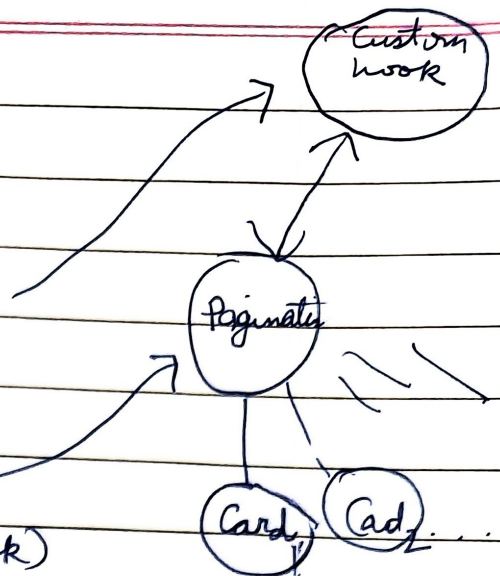 Custom
hook
Paginatis
Card1
Cad2 . . . .
k)